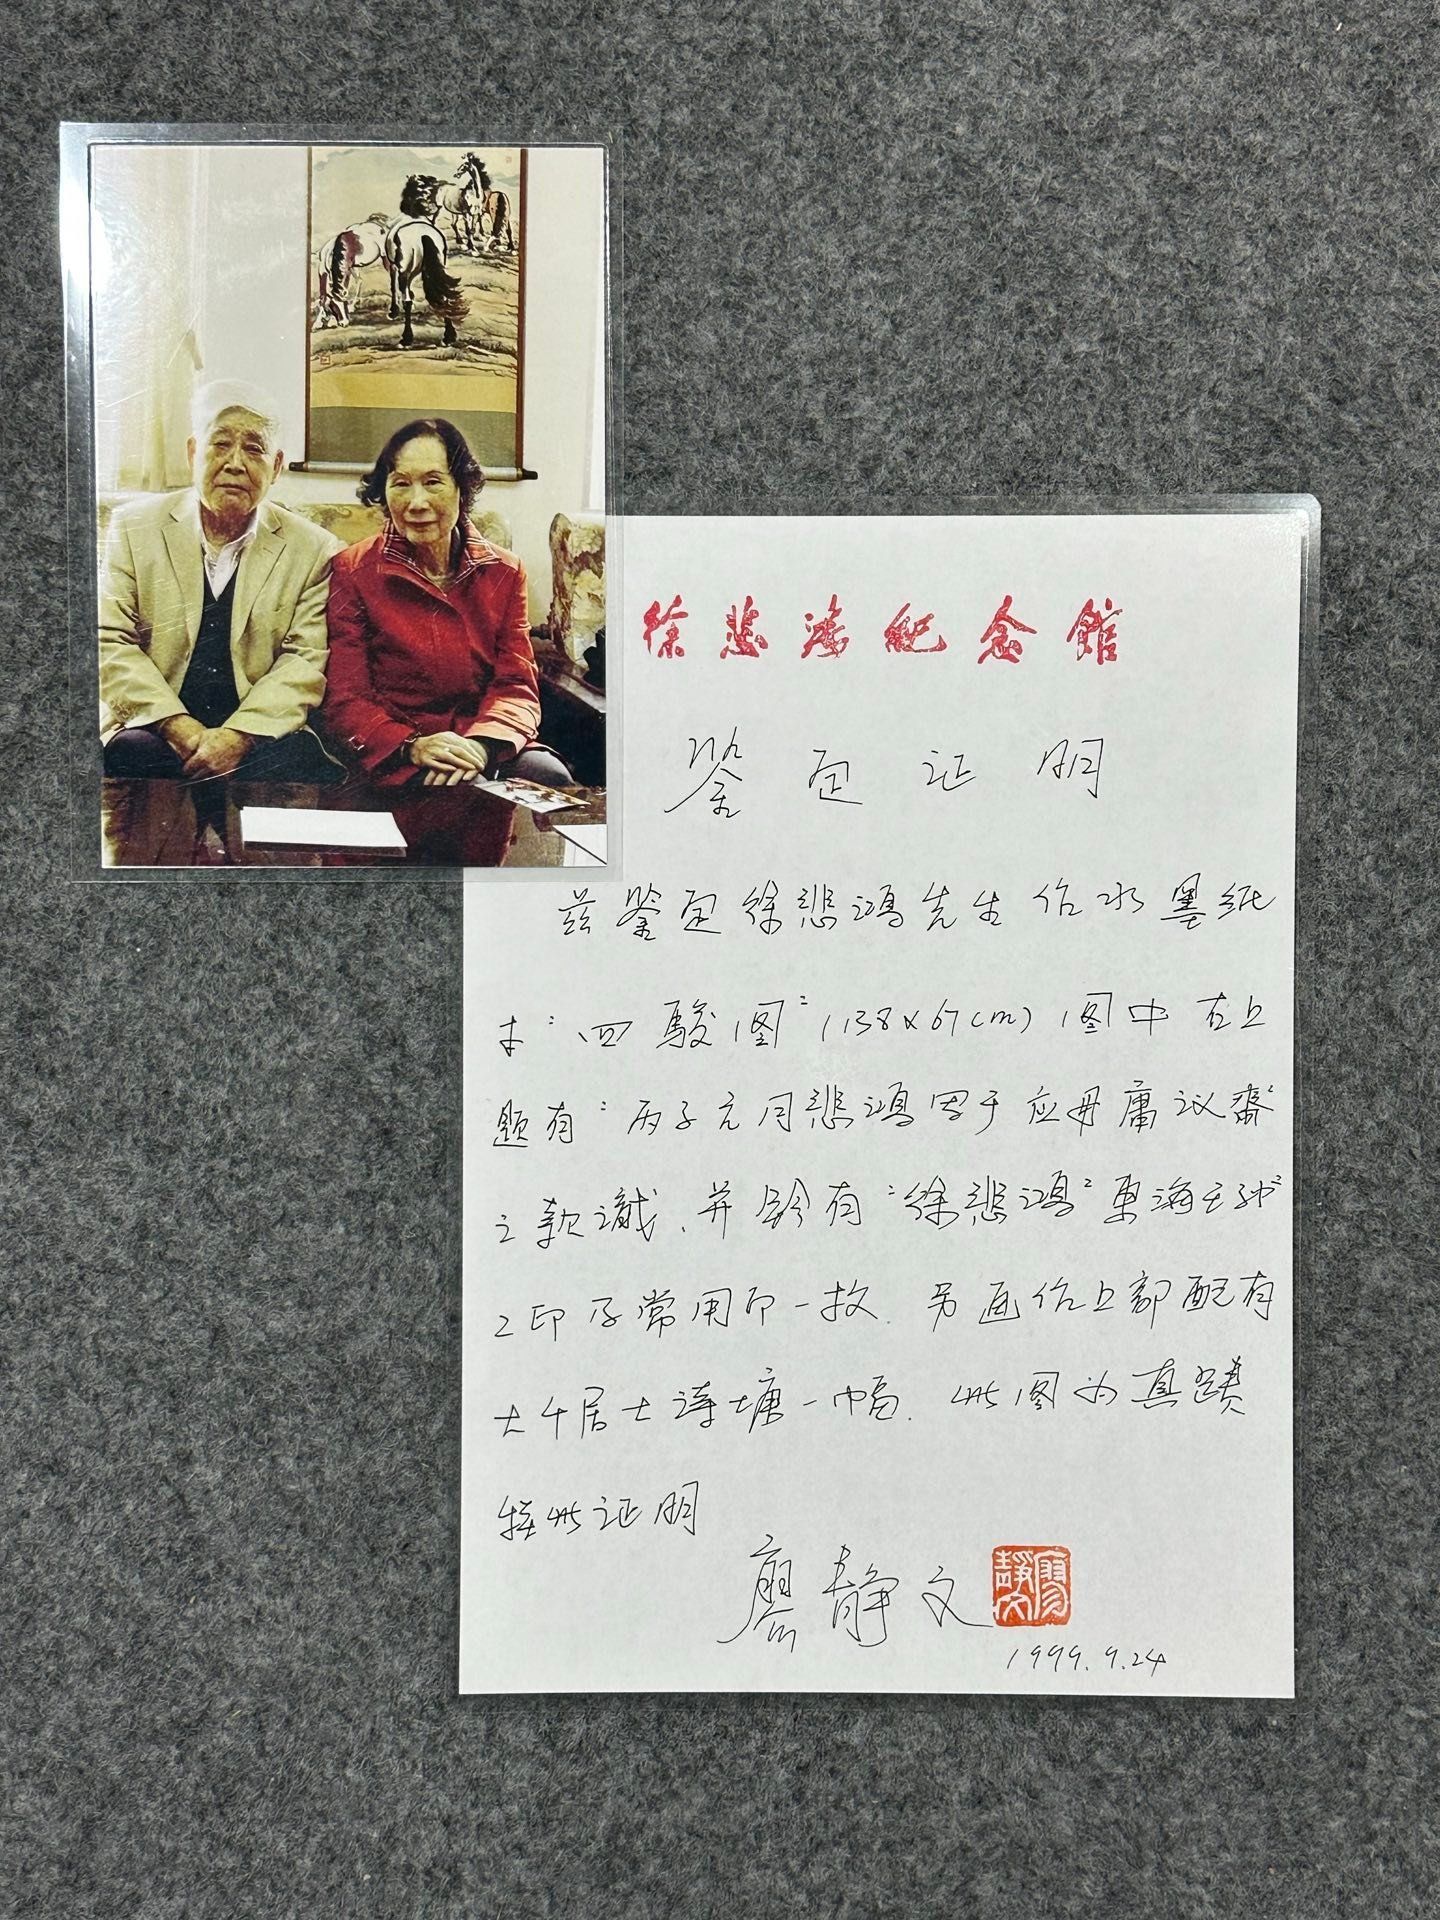 徐悲鸿纪念館
鉴定证明
兹鉴定徐悲鸿先生作水墨纸
本“四骏图”(138x67cm)图中右上
题有“丙子元月悲鸿写于应毋庸议斋”
之款识、并钤有“徐悲鸿”“東海王孙”
之印及常用印一枚.另画作上部配有
大千居士诗塘一幅.此图为真蹟
特此证明
廖静文
廖靜文
1999.9.24